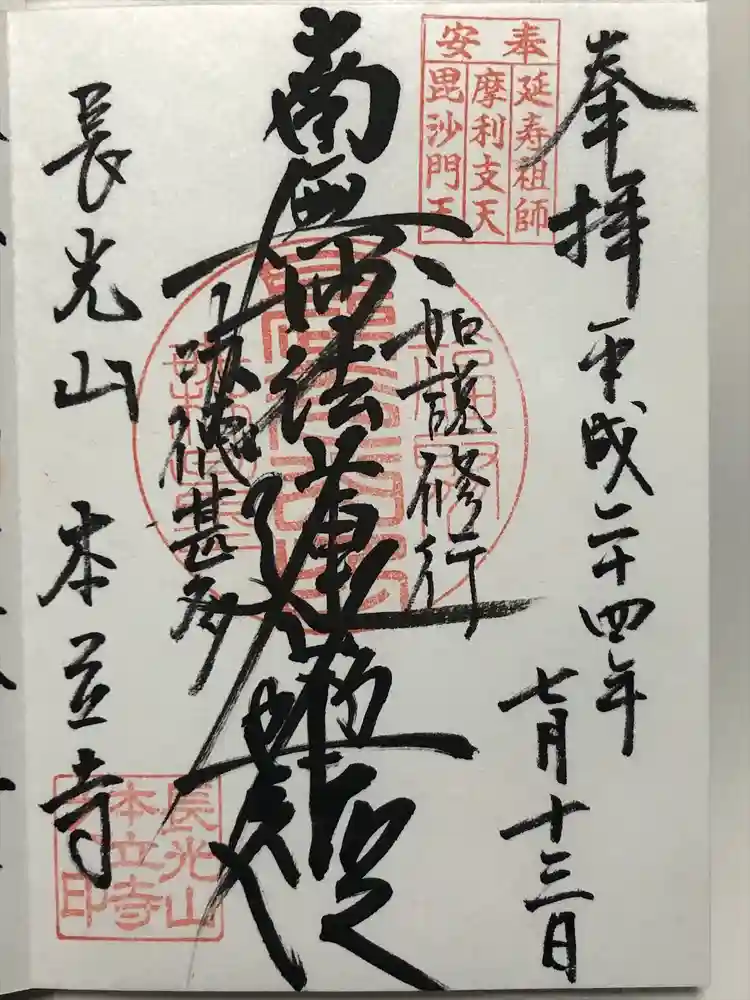 奉拝 平成二十四年
七月十三日
奉安
延寿祖師
摩利支天
毘沙門天
如説修行
南無妙法蓮華経
功徳甚多
長光山 本立寺
長光山
本立寺
印